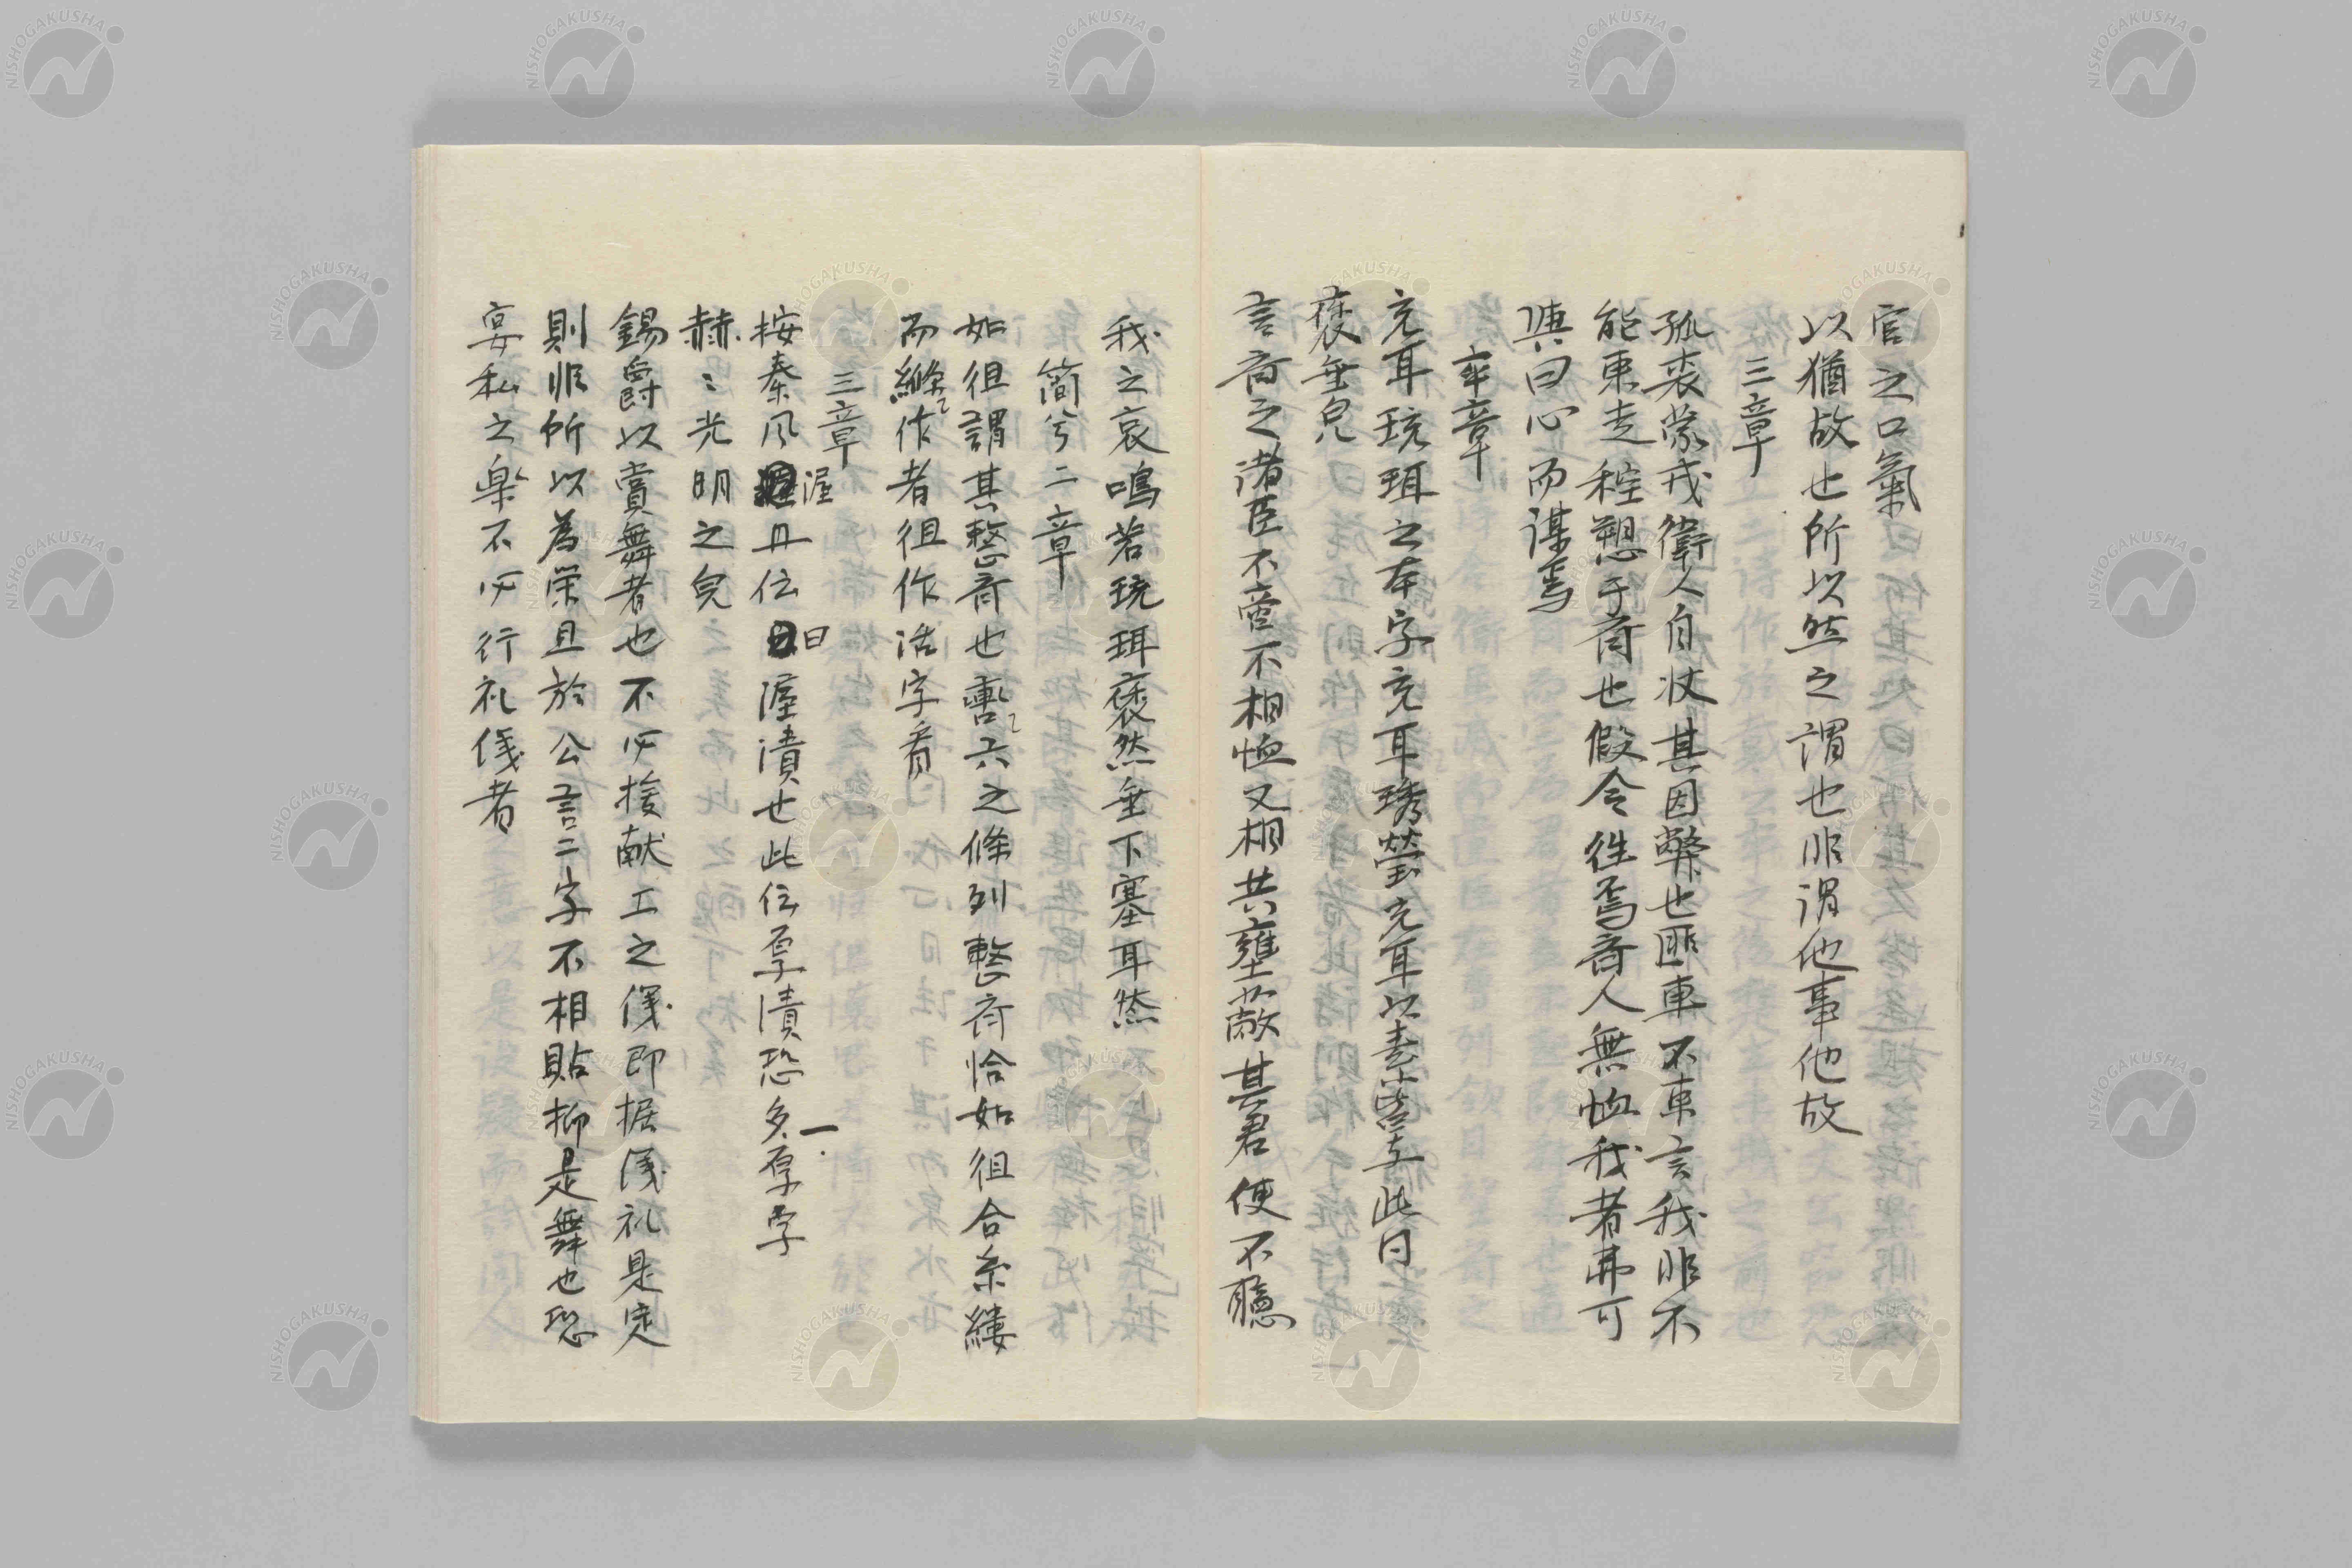 官之口氣
以猶故也所以然之謂也非謂他事他故
三章
狐裘蒙戎衛人自状其困弊也匪車不東言我非不
能東走稑愬于斉也假令徃焉斉人無恤我者弗可
與曰心而謀焉
卒章
充耳琉珥之本字充耳琇瑩充耳以素皆主此曰
褎垂皃
言斉之諸臣不啻不相恤又相共壅蔽其君使不聽
我之哀鳴若琉珥褎然垂下塞耳然
簡兮二章
如徂謂其整斉也轡之六之條列整斉恰如徂合糸縷
而縧之作者徂作活字看
三章
按秦風渥丹伝曰渥漬也此伝厚漬恐多一厚字
赫〻光明之皃
錫爵以賞舞者也不必援献工之儀即据儀礼是定
則非所以為栄且於公言二字不相貼抑是舞也恐
宴私之楽不必行礼儀者